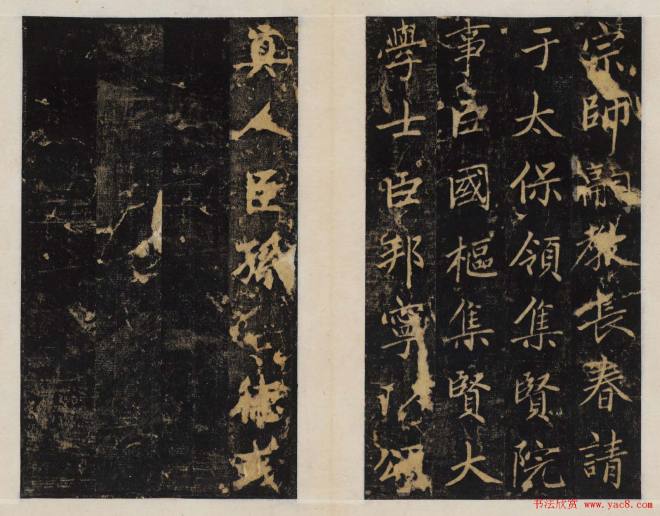 宗師嗣教長春請
于太保領集賢院
事臣國樞集賢大
學士臣邦寧以頌
真人臣孫德彧
书法欣赏 www.yac8.com